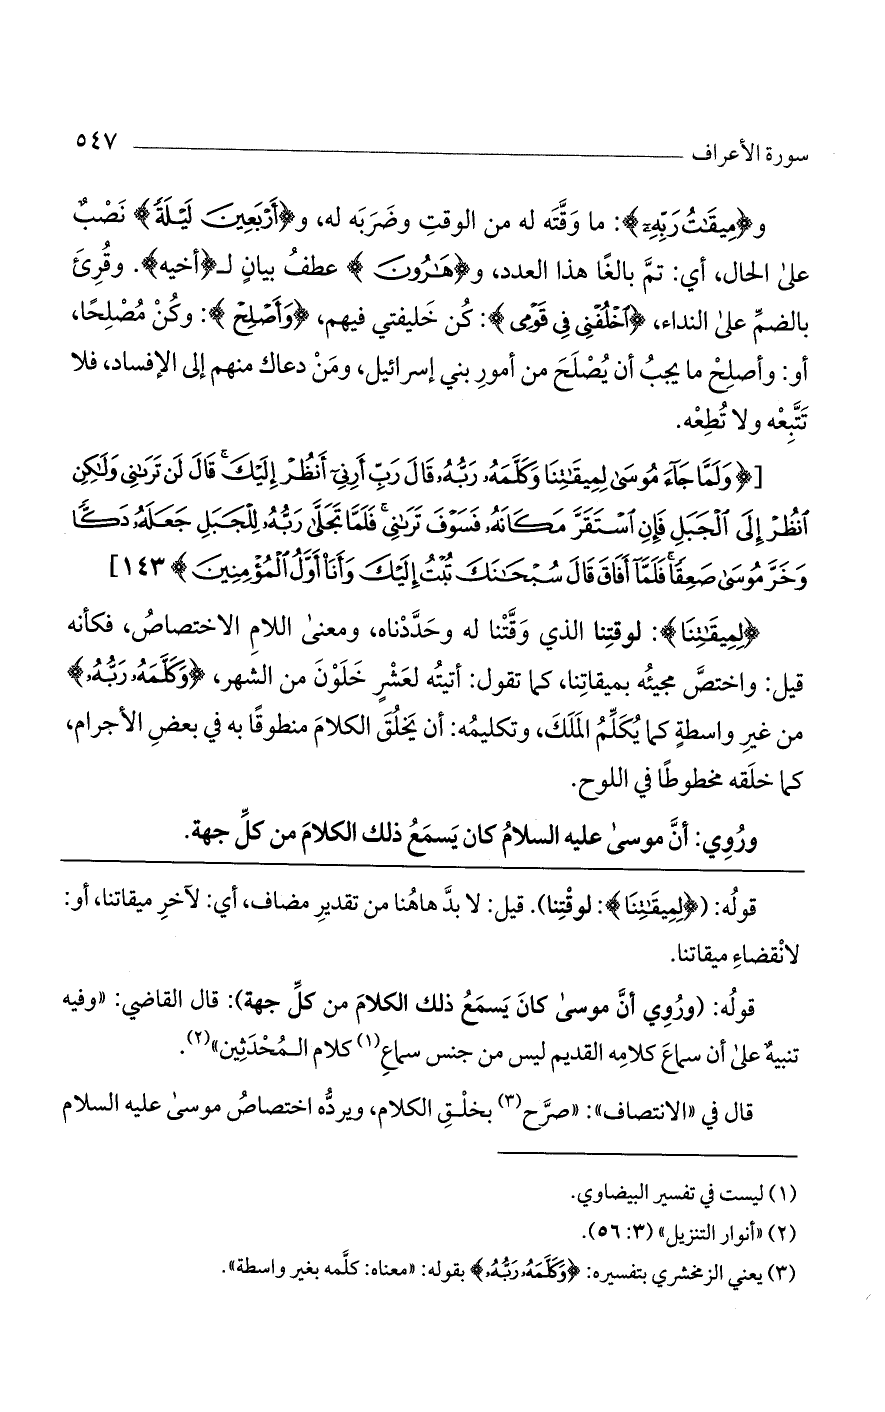 سورة الأعراف ٥٤٧
و﴿مِيقَٰتُ رَبِّهِۦٓ﴾: ما وَقَّتَه له من الوقتِ وضَرَبَه له، و﴿أَرْبَعِينَ لَيْلَةً﴾ نَصْبٌ
على الحال، أي: تمَّ بالغًا هذا العدد، و﴿هَٰرُونَ﴾ عطفُ بيانٍ لـ﴿أخيه﴾. وقُرِئَ
بالضمِّ على النداء، ﴿ٱخْلُفْنِى فِى قَوْمِى﴾: كُن خَليفتي فيهم، ﴿وَأَصْلِحْ﴾: وكُنْ مُصْلِحًا،
أو: وأصلِحْ ما يجبُ أن يُصْلَحَ من أمورِ بني إسرائيل، ومَنْ دعاك منهم إلى الإفساد، فلا
تَتَّبِعْه ولا تُطِعْه.
[﴿وَلَمَّا جَآءَ مُوسَىٰ لِمِيقَٰتِنَا وَكَلَّمَهُۥ رَبُّهُۥ قَالَ رَبِّ أَرِنِىٓ أَنظُرْ إِلَيْكَ ۚ قَالَ لَن تَرَىٰنِى وَلَٰكِنِ
ٱنظُرْ إِلَى ٱلْجَبَلِ فَإِنِ ٱسْتَقَرَّ مَكَانَهُۥ فَسَوْفَ تَرَىٰنِى ۚ فَلَمَّا تَجَلَّىٰ رَبُّهُۥ لِلْجَبَلِ جَعَلَهُۥ دَكًّا
وَخَرَّ مُوسَىٰ صَعِقًا ۚ فَلَمَّآ أَفَاقَ قَالَ سُبْحَٰنَكَ تُبْتُ إِلَيْكَ وَأَنَا۠ أَوَّلُ ٱلْمُؤْمِنِينَ﴾ ١٤٣]
﴿لِمِيقَٰتِنَا﴾: لوقتِنا الذي وَقَّتْنا له وحَدَّدْناه، ومعنىٰ اللامِ الاختصاصُ، فكأنه
قيل: واختصَّ مجيئُه بميقاتِنا، كما تقول: أتيتُه لعَشْرٍ خَلَوْنَ من الشهر، ﴿وَكَلَّمَهُۥ رَبُّهُۥ﴾
من غيرِ واسطةٍ كما يُكَلِّمُ المَلَكَ، وتكليمُه: أن يَخلُقَ الكلامَ منطوقًا به في بعضِ الأجرام،
كما خلَقه مخطوطًا في اللوح.
ورُوِي: أنَّ موسىٰ عليه السلامُ كان يَسمَعُ ذلك الكلامَ من كلِّ جهة.
قولُه: (﴿لِمِيقَٰتِنَا﴾: لوقْتِنا). قيل: لا بدَّ هاهُنا من تقديرِ مضاف، أي: لآخرِ ميقاتنا، أو:
لانْقضاءِ ميقاتنا.
قولُه: (ورُوِي أنَّ موسىٰ كانَ يَسمَعُ ذلك الكلامَ من كلِّ جهة): قال القاضي: «وفيه
تنبيهٌ علىٰ أن سماعَ كلامِه القديم ليس من جنس سماعِ(١) كلام المُحْدَثِين»(٢).
قال في «الانتصاف»: «صرَّح(٣) بخلْقِ الكلام، ويردُّه اختصاصُ موسىٰ عليه السلام
(١) ليست في تفسير البيضاوي.
(٢) «أنوار التنزيل» (٣: ٥٦).
(٣) يعني الزمخشري بتفسيره: ﴿وَكَلَّمَهُۥ رَبُّهُۥ﴾ بقوله: «معناه: كلَّمه بغير واسطة».